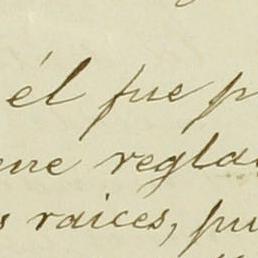 él fue p
ene regla
s raices, pu